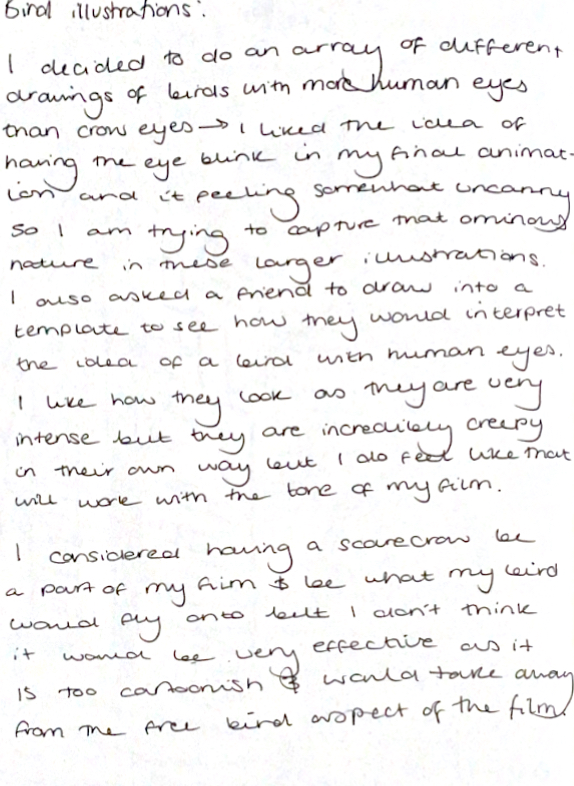 bird illustrations:
I decided to do an array of different
drawings of birds with more human eyes
than crow eyes → I liked the idea of
having the eye blink in my final animat-
ion and it feeling somewhat uncanny
so I am trying to capture that ominous
nature in these larger illustrations.
I also asked a friend to draw into a
template to see how they would interpret
the idea of a bird with human eyes.
I like how they look as they are very
intense but they are incredibly creepy
in their own way but I do feel like that
will work with the tone of my film.
I considered having a scarecrow be
a part of my film & be what my bird
would fly onto but I don't think
it would be very effective as it
is too cartoonish & would take away
from the free bird aspect of the film.